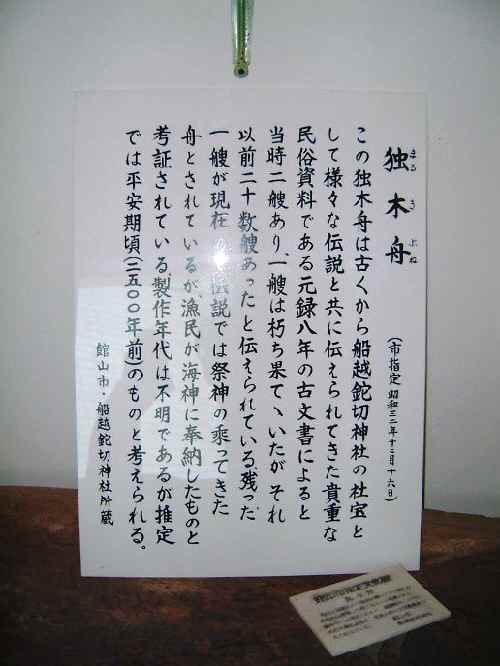 独木舟
まるきぶね
(市指定 昭和三二年十二月十六日)
この独木舟は古くから船越鉈切神社の社宝と
して様々な伝説と共に伝えられてきた貴重な
民俗資料である元録八年の古文書によると
当時二艘あり、一艘は朽ち果てヽいたが それ
以前二十数艘あったと伝えられている残った
一艘が現在 伝説では祭神の乗ってきた
舟とされているが、漁民が海神に奉納したものと
考証されている、製作年代は不明であるが推定
では平安期頃(二五〇〇年前)のものと考えられる。
館山市・船越鉈切神社所蔵